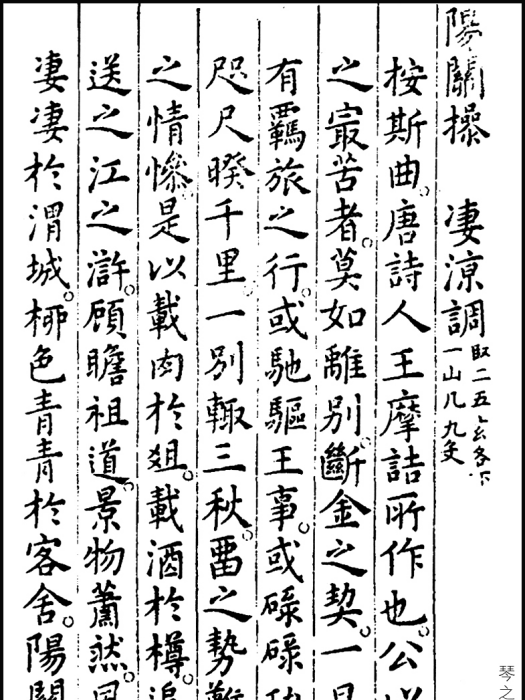 陽關操 凄涼調 取二五各下一山几九爻
桉斯曲。唐詩人王摩詰所作也。公
之㝡苦者。莫如離別。斷金之契。一
有羈旅之行。或馳驅王事。或碌碌
咫尺暌千里。一別輙三秋。畱之勢
之情慘。是以載肉於俎。載酒於樽。
送之江之滸。顧瞻祖道。景物蕭然。
凄凄於渭城。栁色青青於客舍。陽關
琴之